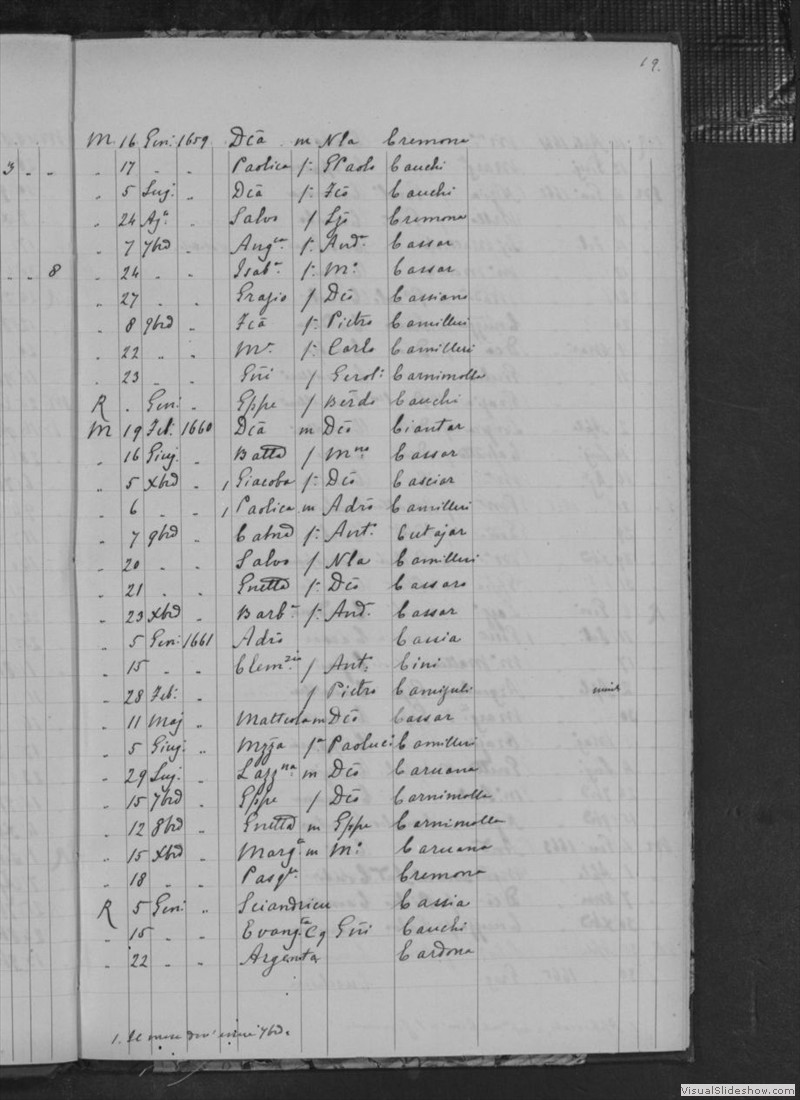 19.
M 16 Gen: 1659 Dcā m Nla Cremona
3 " " " 17 " " Paolica f: GPaolo Cauchi
" 5 Lug: " Dcā f: Fcō Cauchi
" 24 Agº " Salvo f Ljō Cremona
" 7 7brē " Angca f: Andª Cassar
" " 8 " 24 " " Isabª f: Mº Cassar
" 27 " " Grazio f Dcō Cassiano
" 8 9brē " Fcā f: Pietro Camilleri
" 22 " " Mª f: Carlo Camilleri
" 23 " " Gñi f Gerolº Carnimolla
R " Gen: " Gppe f Bērdo Cauchi
M 19 Feb: 1660 Dcā m Dcō Ciantar
" 16 Giug: " Batta f Mno Cassar
" 5 Xbrē " 1 Giacoba f: Dcō Casciar
" 6 " " 1 Paolica m Adrō Camilleri
" 7 9brē " Catnā f: Antº Cutajar
" 20 " " Salvo f Nla Camilleri
" 21 " " Gnetta f: Dcō Cassaro
" 23 Xbrē " Barbª f: Andª Cassar
" 5 Gen: 1661 Adrō Cassia
" 15 " " Clemzia f Antº Cini
" 28 Feb: " f Pietro Camiguli
" 11 Mag " Matteola m Dcō Cassar
" 5 Giug: " fª Paoluci Camilleri
" 29 Lug: " Lazzna m Dcō Caruana
" 15 7brē " Gppe f Dcō Carnimolla
" 12 8brē " Gnetta m Gppe Carnimolla
" 15 Xbrē " Margª m Mº Caruana
" 18 " " Pasqª Cremona
R 5 Gen: " Sciandrieu Cassia
" 15 " " Evangta Cq Gñi Cauchi
" 22 " " Argenta Cardona
1. Il mese 7brē
VisualSlideshow.com